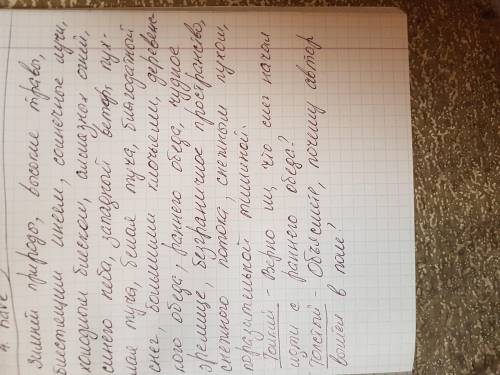 Зимней природо, высокие травы,
блестящим инеем, солнечные лучи,
холодным блеском, алмазных огней,
синего неба, западный ветер, пух-
лая туча, белая туча, благодатной
снег, большими клочьями, деревенс-
кого обеда, раннего обеда, чудное
зрелище, безграничное пространство,
снежного потока, снежным пухом,
поразительной тишиной.
Тонкий - Верно ли, что снег начал
идти с раннего обеда?
Толстый - Объясните, почему автор
вышел в поле?